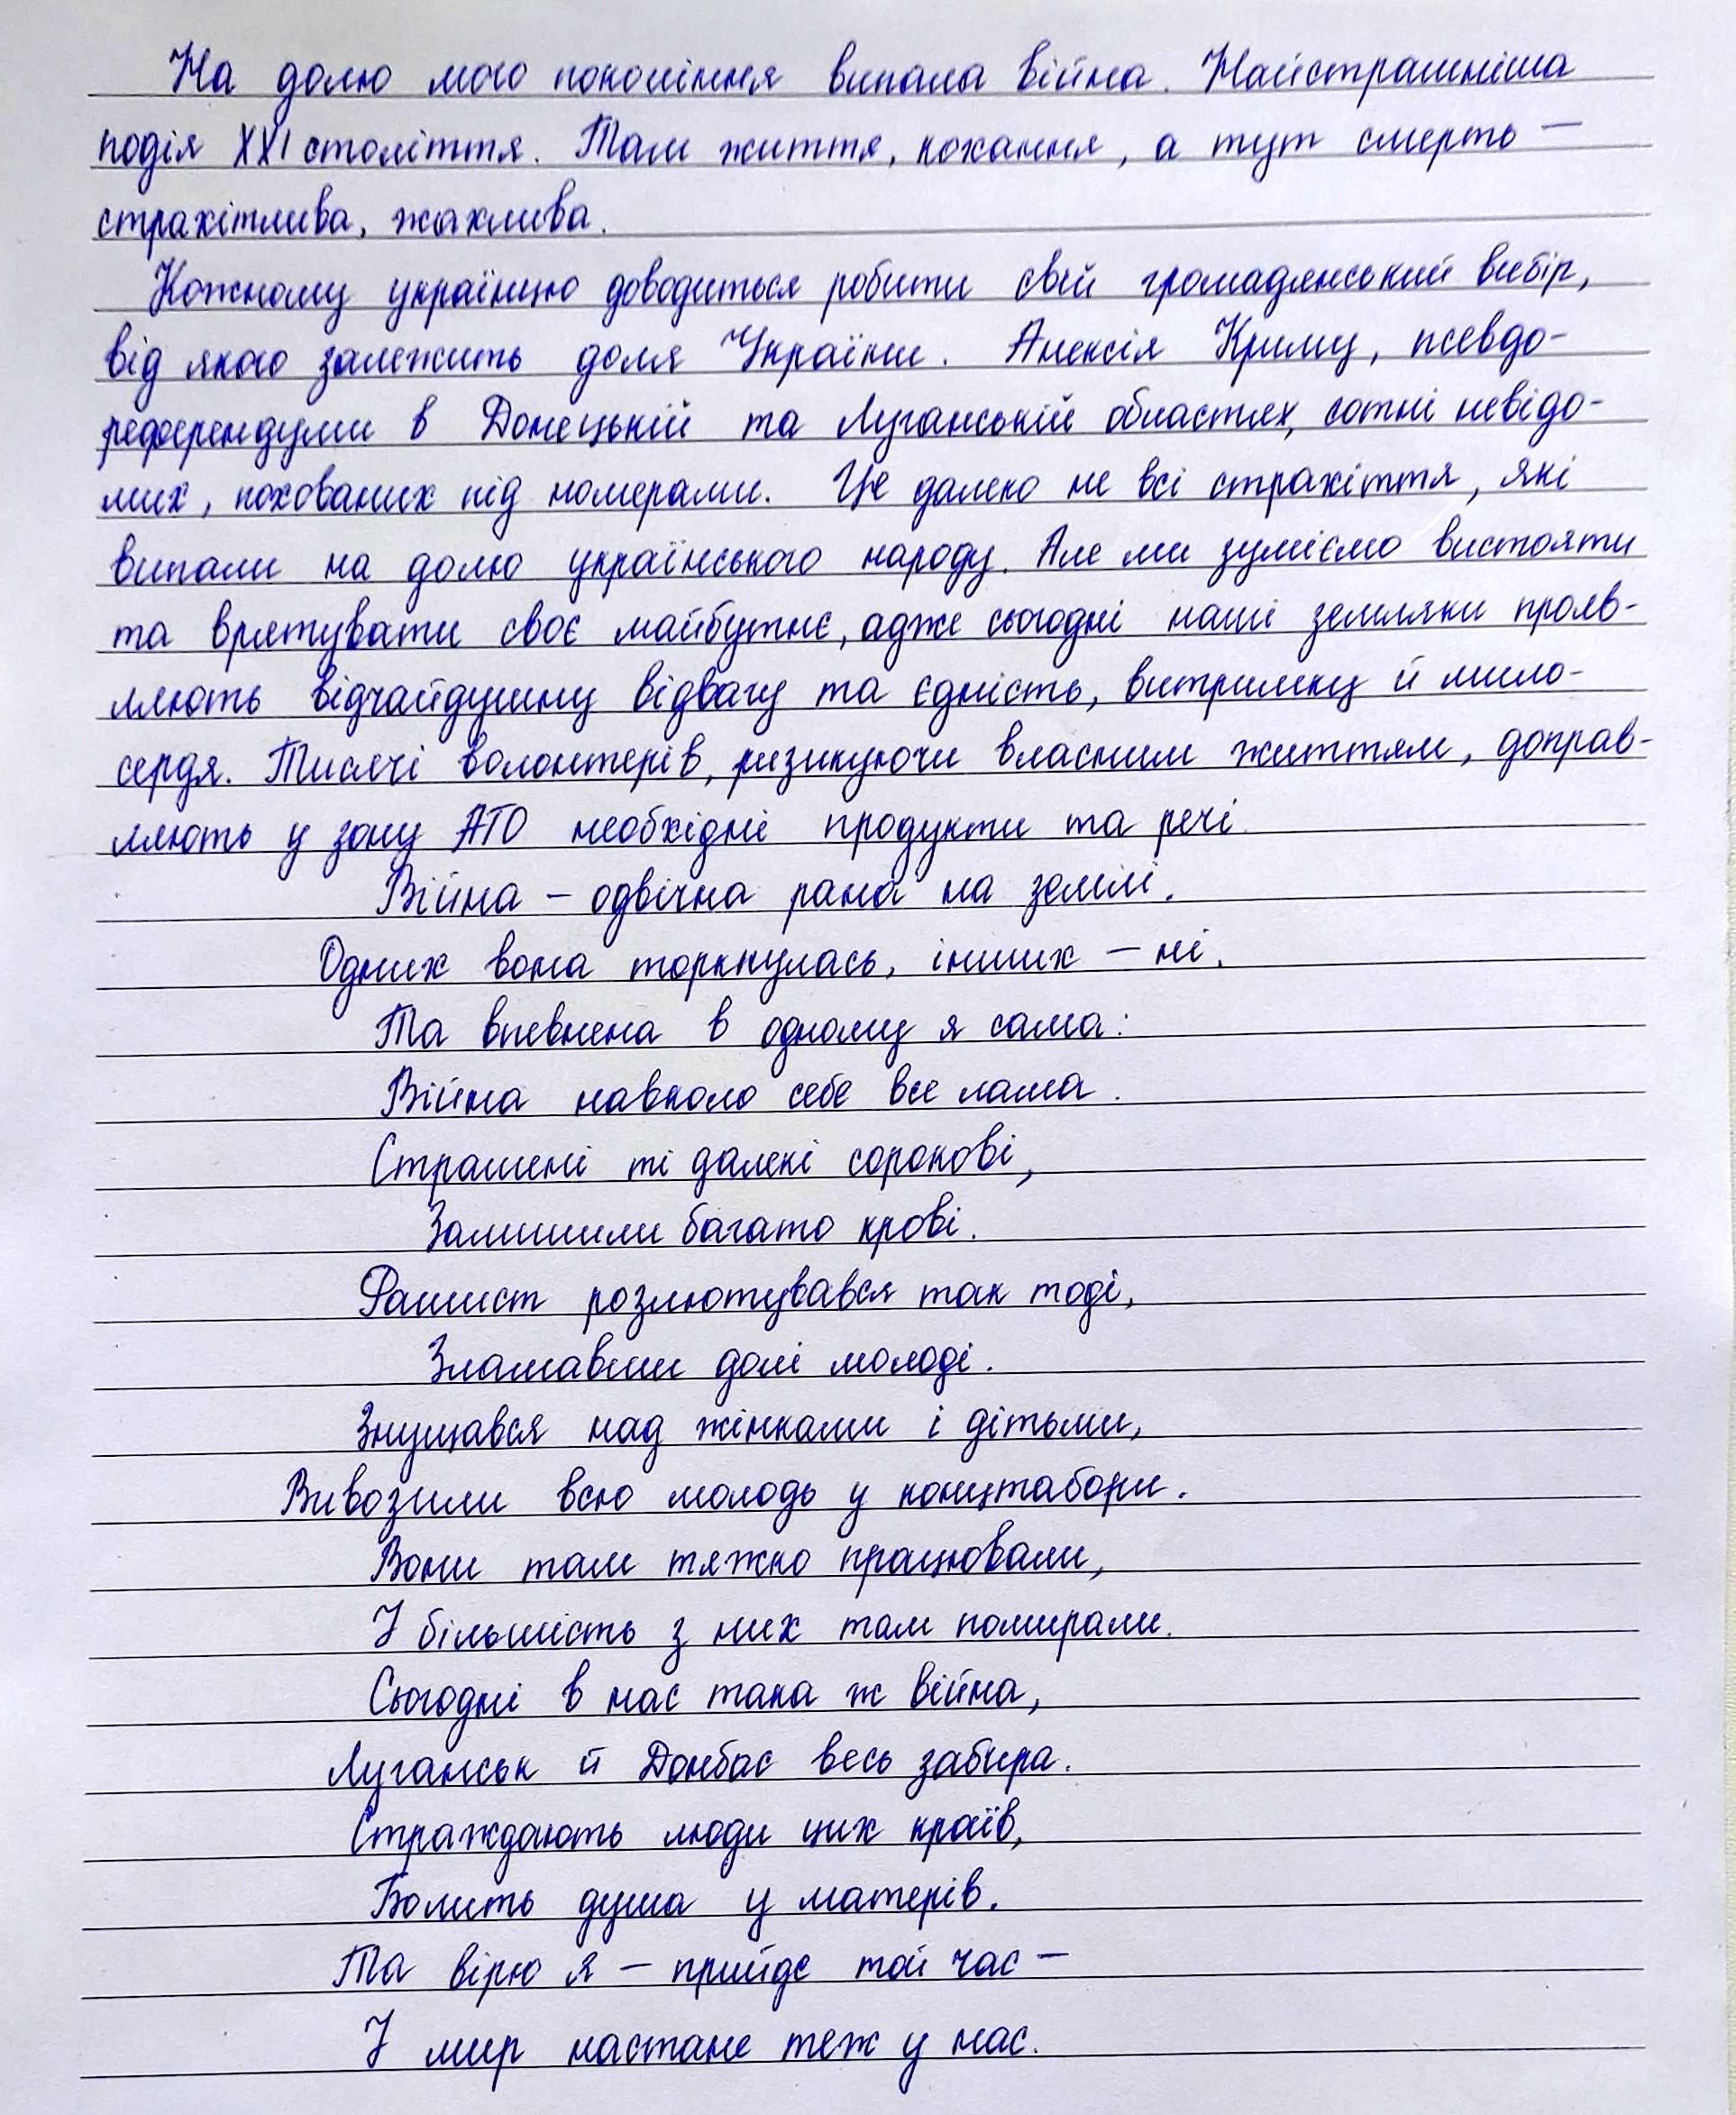 На долю мого покоління випала війна. Найстрашніша
подія XXI століття. Там життя, кохання, а тут смерть –
страхітлива, жахлива.
Кожному українцю доводиться робити свій громадянський вибір,
від якого залежить доля України. Анексія Криму, псевдо-
референдуми в Донецькій та Луганській областях, сотні невідо-
мих, похованих під номерами. Це далеко не всі страхіття, які
випали на долю українського народу. Але ми зуміємо вистояти
та врятувати своє майбутнє, адже сьогодні наші земляки прояв-
ляють відчайдушну відвагу та єдність, витримку й мило-
сердя. Тисячі волонтерів, ризикуючи власним життям, доправ-
ляють у зону АТО необхідні продукти та речі.
Війна – одвічна рана на землі.
Одних вона торкнулась, інших – ні.
Та впевнена в одному я сама:
Війна навколо себе все лама.
Страшені ті далекі сорокові,
Залишили багато крові.
Фашист розлютувався так тоді,
Зламавши долі молоді.
Знущався над жінками і дітьми,
Вивозили всю молодь у концтабори.
Вони там тяжко працювали,
І більшість з них там помирали.
Сьогодні в нас така ж війна,
Луганськ й Донбас весь забира.
Страждають люди цих країв,
Болить душа у матерів.
Та вірю я – прийде той час –
І мир настане теж у нас.